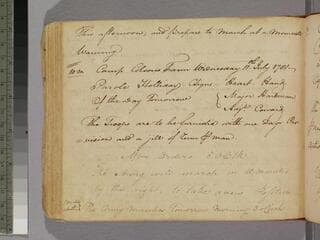 This afternoon and prepare to March at a Moments
Warning
Camp Edens Farm Wednesday 11th July 1781
Parole Holliday C Signs Heart Hand
Of the day Tomorrow { Major Hardman
{ Adjt Coward
The Troops are to be furnished with one Days Pro
vision and a jill of Rum P man
After Orders 5 oClk
The Army will march in
by the right to take
The Army Marches Tomorrow Morning 3 oClock